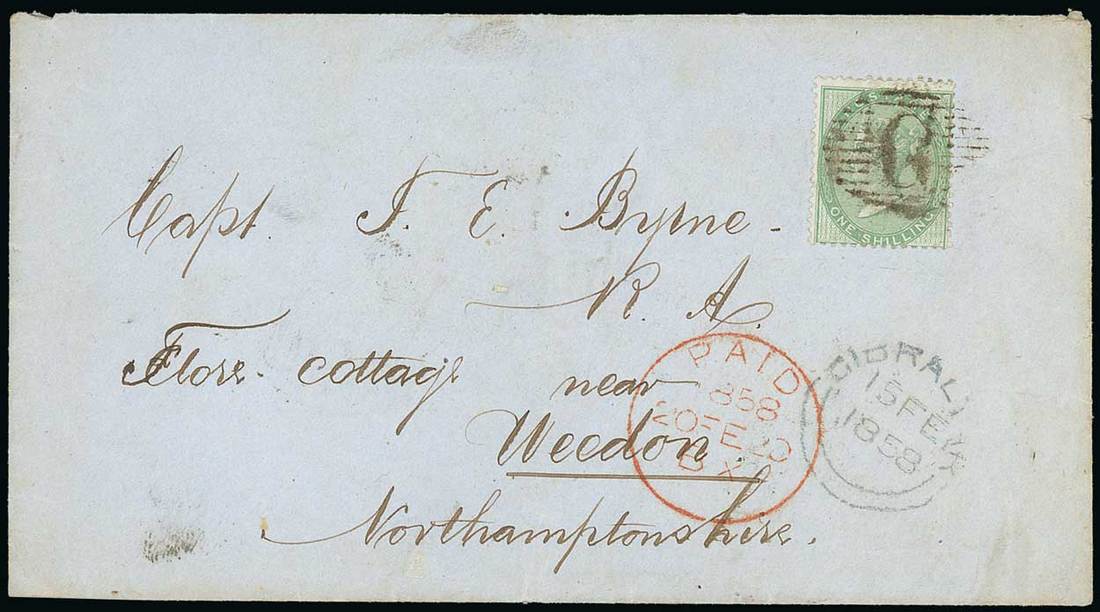 G
ONE SHILLING
Capt. F. E. Byrne
R. A.
Flore cottage near
Weedon
Northamptonshire.
PAID
1858
20 FE 20
GIBRALT
15 FE
1858